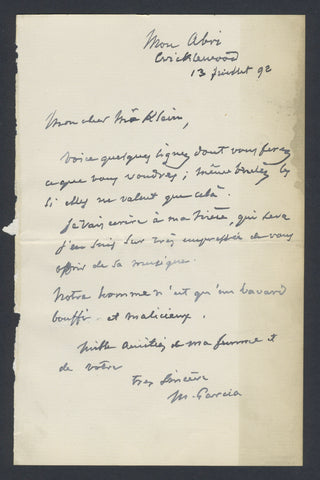 Mon Abri
Cricklewood
13 juillet 92
Mon cher Mr Klein,
Voice quelques lignes dont vous ferez
ce que vous voudrez ; même brulez les
si elles ne valent que celà.
Je vais écrire à ma nièce, qui sera
j'en suis sur très empressée de vous
offrir de sa musique.
Notre homme n'est qu'un bavard
bouffi et malicieux.
Mille amitiés de ma femme et
de votre
tres sincère
M. Garcia